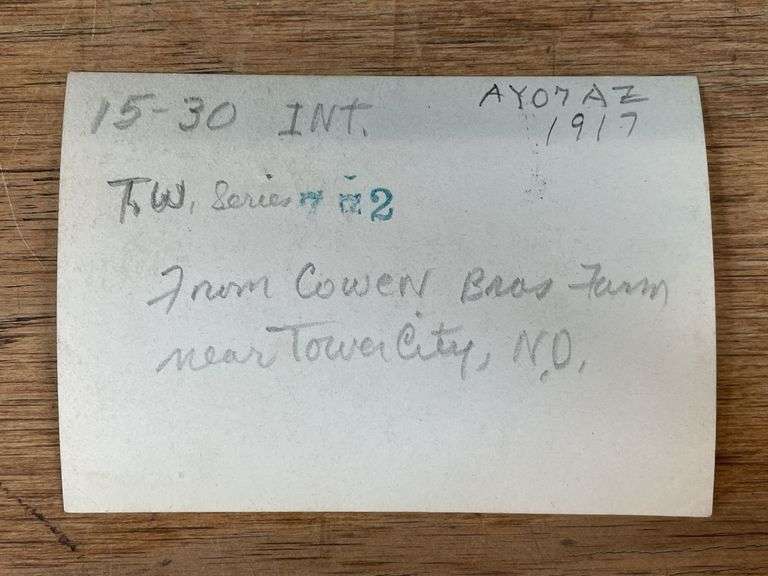 15-30 INT.
AY07AZ
1917
T.W. Series 2
From Cowen Bros Farm
near Tower City, N.D.